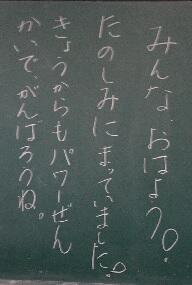 みんな、おはよう。
たのしみにまっていました。
きょうからもパワーぜん
かいで、がんばろうね。